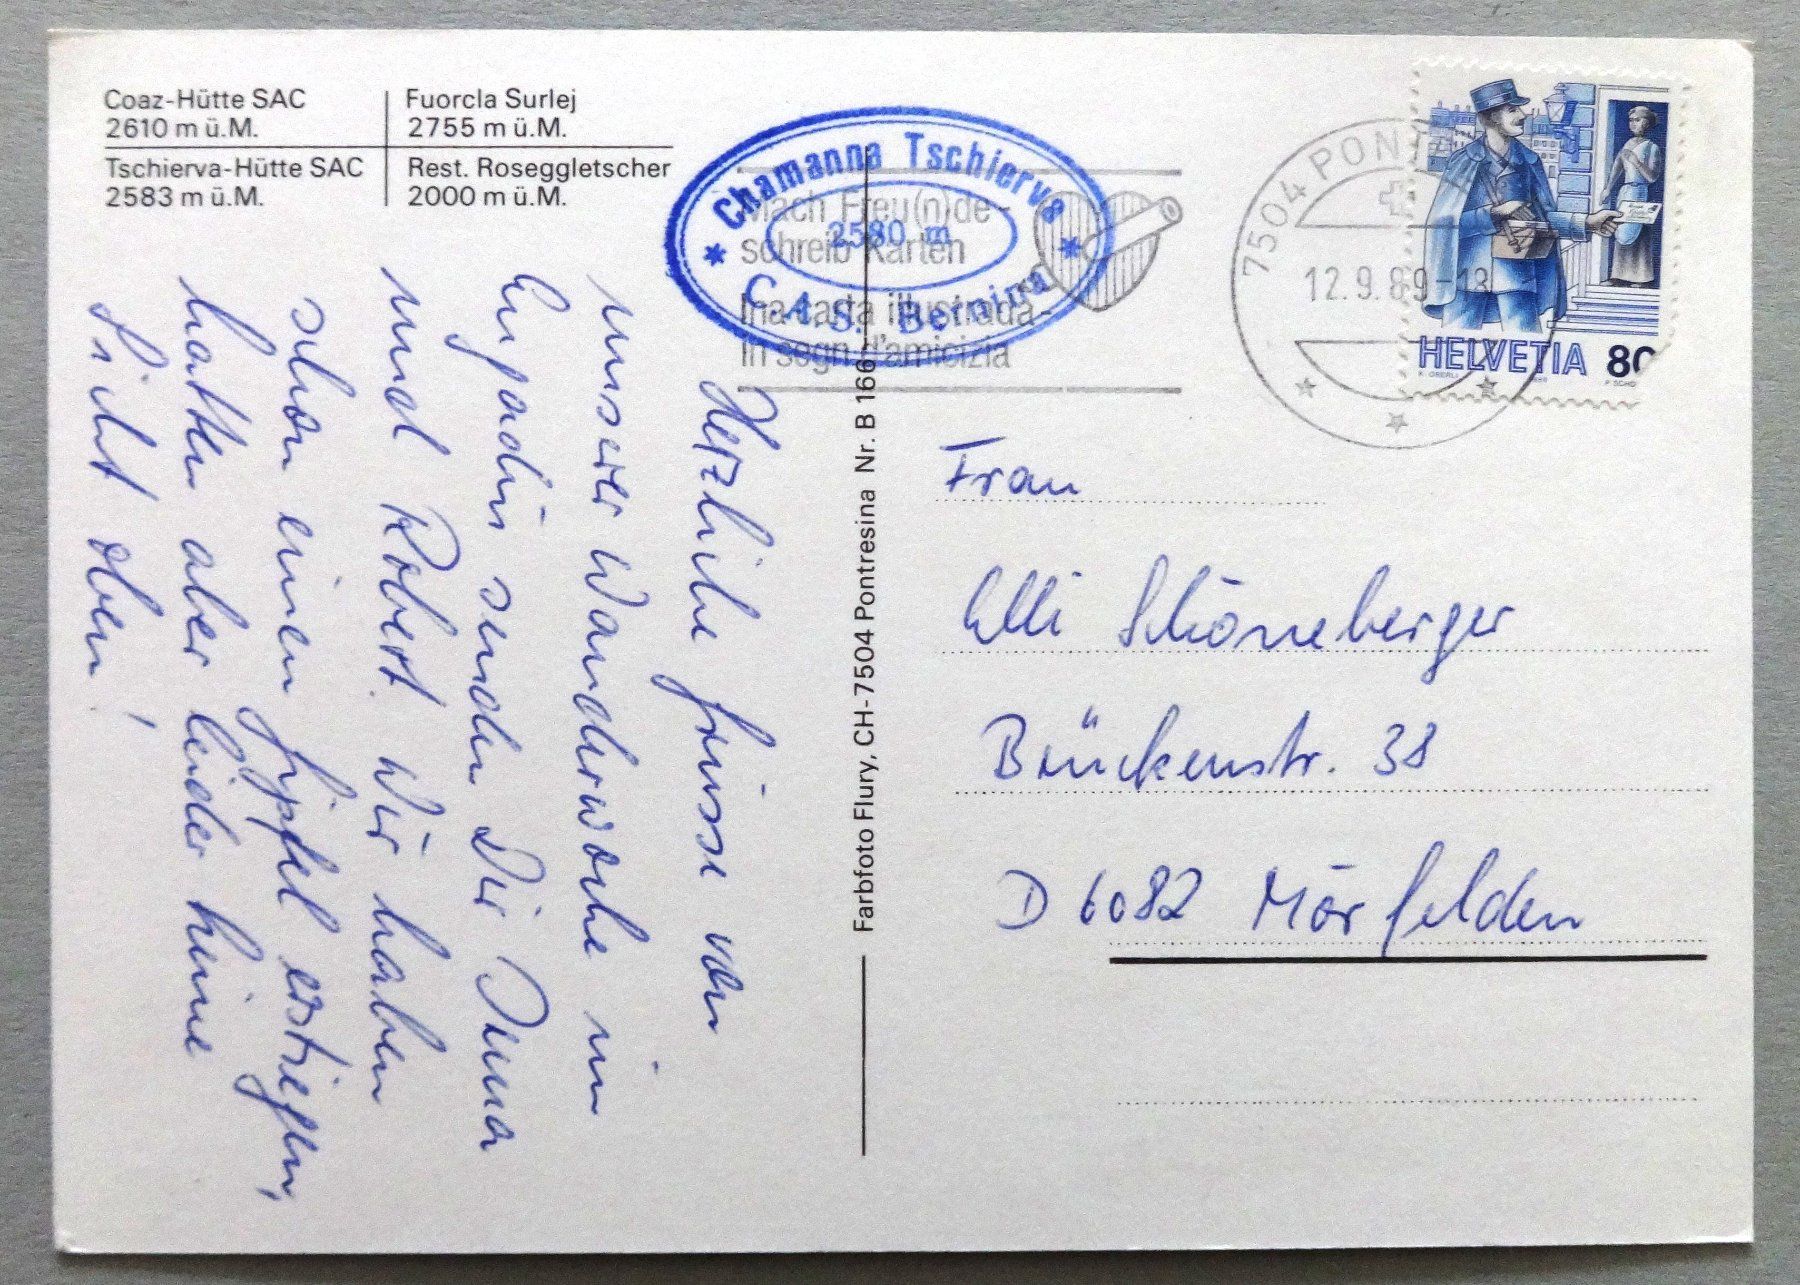 Coaz-Hütte SAC
2610 m ü.M.
Fuorcla Surlej
2755 m ü.M.
Tschierva-Hütte SAC
2583 m ü.M.
Rest. Roseggletscher
2000 m ü.M.
Chamanna Tschierva
2580 m
C.A.S. Bernina
Mach Freu(n)de-
schreib Karten
Ina carta illustrada-
in segn d'amicizia
7504 PON
12.9.89-18
HELVETIA 80
Herzliche Grüsse von
unserer Wanderwoche im
Engadin senden Dir
und Robert. Wir haben
schon einen Gipfel erstiegen,
hatten aber leider keine
Sicht oben!
Farbfoto Flury, CH-7504 Pontresina Nr. B 166
Frau
Elli Schöneberger
Brückenstr. 38
D 6082 Mörfelden